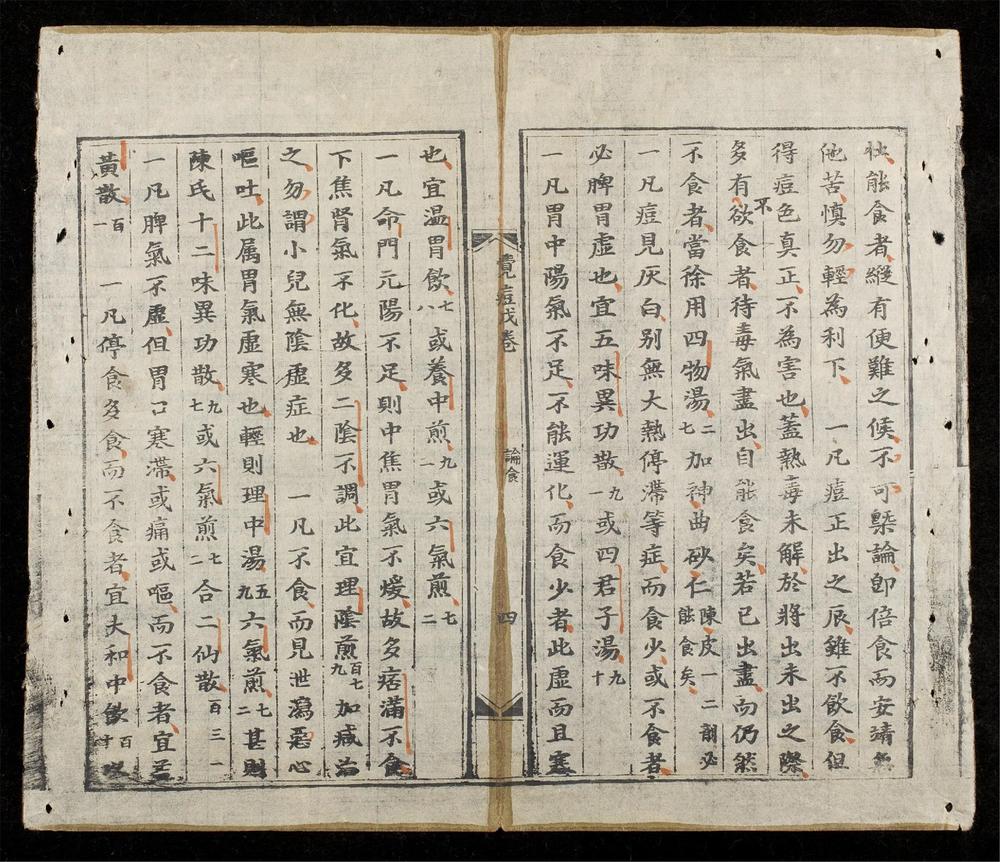 能食者、縱有便難之候、不可槩論、卽倍食而安靖無
他苦、慎勿輕為利下、　一凡痘正出之辰、雖不飲食、但
得痘色真正、不為害也、蓋熱毒未解、於將出未出之際、
多有不欲食者、待毒氣盡出、自能食矣、若已出盡、而仍然
不食者、當徐用四物湯、二七加神曲砂仁陳皮一二劑必能食矣、
一凡痘見灰白、別無大熱停滯等症、而食少、或不食者、
必脾胃虛也、宜五味異功散、九一或四君子湯、九十
一凡胃中陽氣不足、不能運化、而食少者、此虛而且寒
痘戊卷
論食
四
也、宜温胃飲、七八或養中煎、九一或六氣煎、七二
一凡命門元陽不足、則中焦胃氣不煖、故多痞滿不食、
下焦腎氣不化、故多二陰不調、此宜理陰煎、百七九加减治
之、勿謂小兒無陰虛症也、　一凡不食、而見泄瀉惡心
嘔吐、此属胃氣虛寒也、輕則理中湯、五九六氣煎、七二甚則
陳氏十二味異功散、九七或六氣煎、七二合二仙散、百三一
一凡脾氣不虛、但胃口寒滯、或痛或嘔、而不食者、宜
黄散、百一　一凡停食多食、而不食者、宜大和中飲、百十